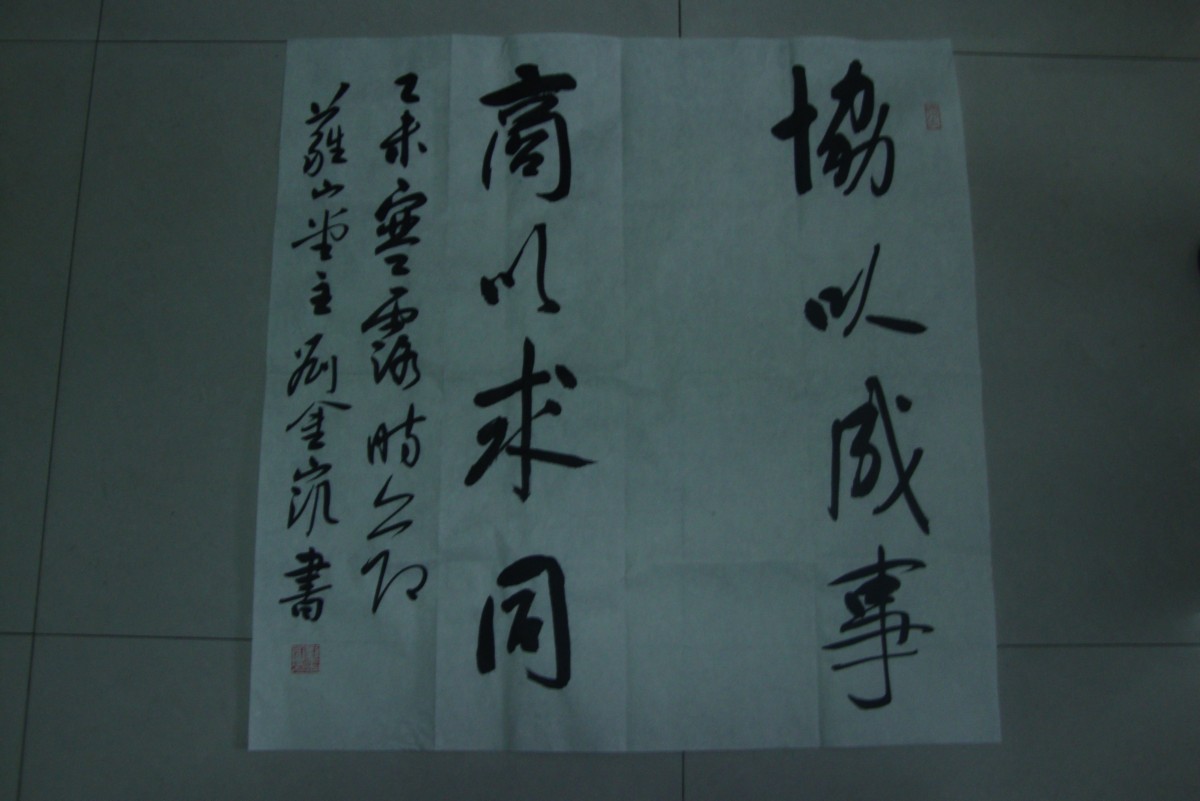 協以成事
商以求同
乙未寒露時令即
蘿山堂主劉金嵐書